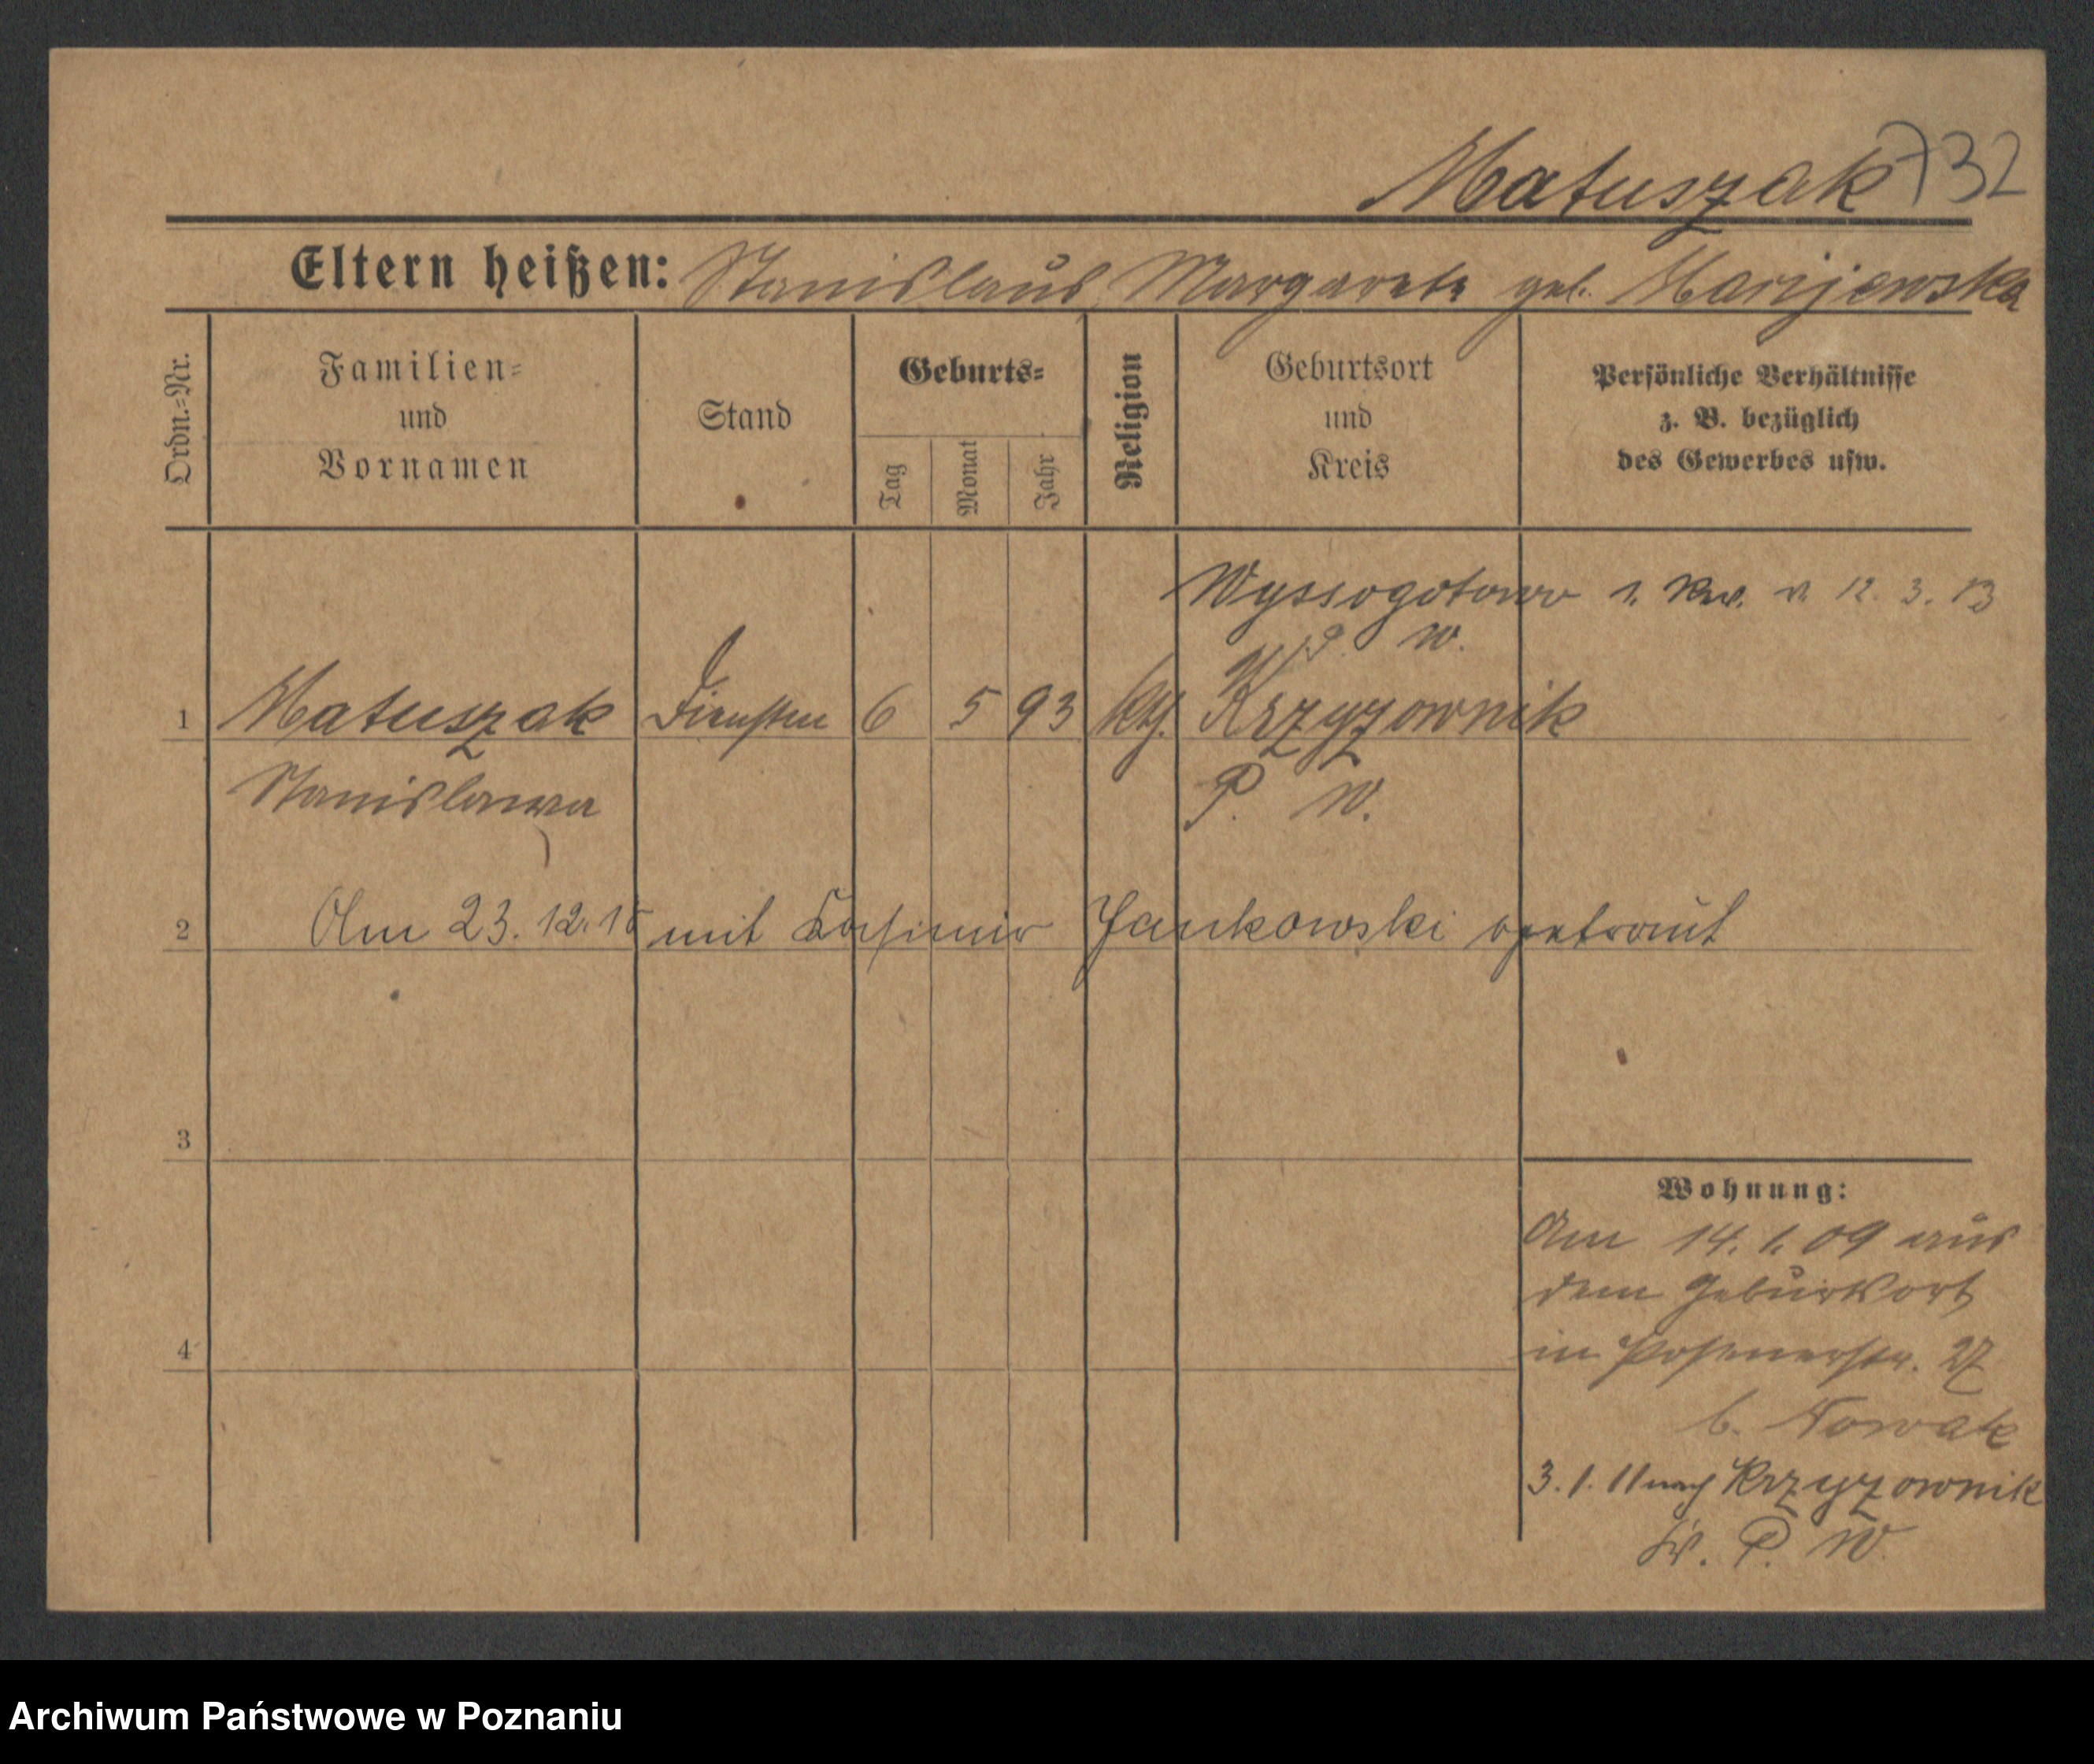 Matuszak 732
Eltern heißen: Stanislaus, Margarete geb. Marijewska
Ordn.-Nr.
Familien-
und
Vornamen
Stand
Geburts-
Tag
Monat
Jahr
Religion
Geburtsort
und
Kreis
Persönliche Verhältnisse
z. B. bezüglich
des Gewerbes usw.
Wyssogotowo v. 12. 3. 13
P. W.
1 Matuszak 6 5 93 kth. Krzyzownik
Stanislawa P. W.
2 Am 23. 12. mit Kasimir Jankowski getraut
3
4
Wohnung:
Am 14. 1. 09 aus
dem Geburtsort
in Posenerstr. 27
b. Nowak
3. 1. 11 nach Krzyzownik
Kr. P. W.
Archiwum Państwowe w Poznaniu